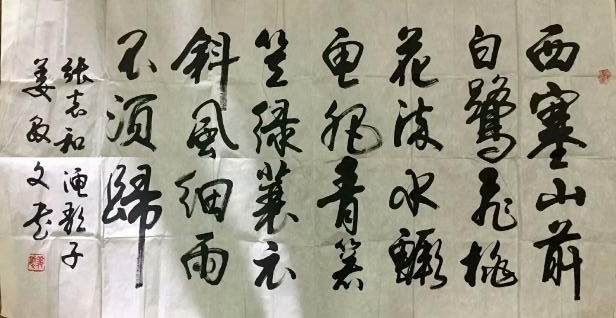 西塞山前
白鹭飞桃
花流水鳜
鱼肥青箬
笠绿蓑衣
斜風细雨
不須歸
張志和 渔歌子
姜敏文书